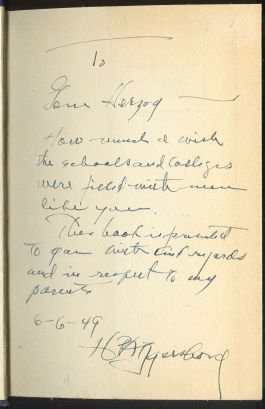 To
Herzog
How much I wish
the schools and Colleges
were filled with men
like you.
This book is presented
to you with kind regards
and in respect to my
parents
6-6-49